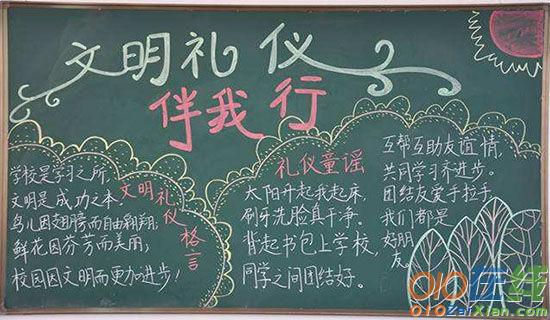 文明礼仪
伴我行
学校是学习之所,
文明是成功之本.
鸟儿因翅膀而自由翱翔;
鲜花因芬芳而美丽;
校园因文明而更加进步!
文明礼仪格言
礼仪童谣
太阳升起我起床,
刷牙洗脸真干净.
背起书包上学校,
同学之间团结好.
互帮互助友谊情,
共同学习齐进步.
团结友爱手拉手,
我们都是
好朋友。
010在线
010ZaiXian.com